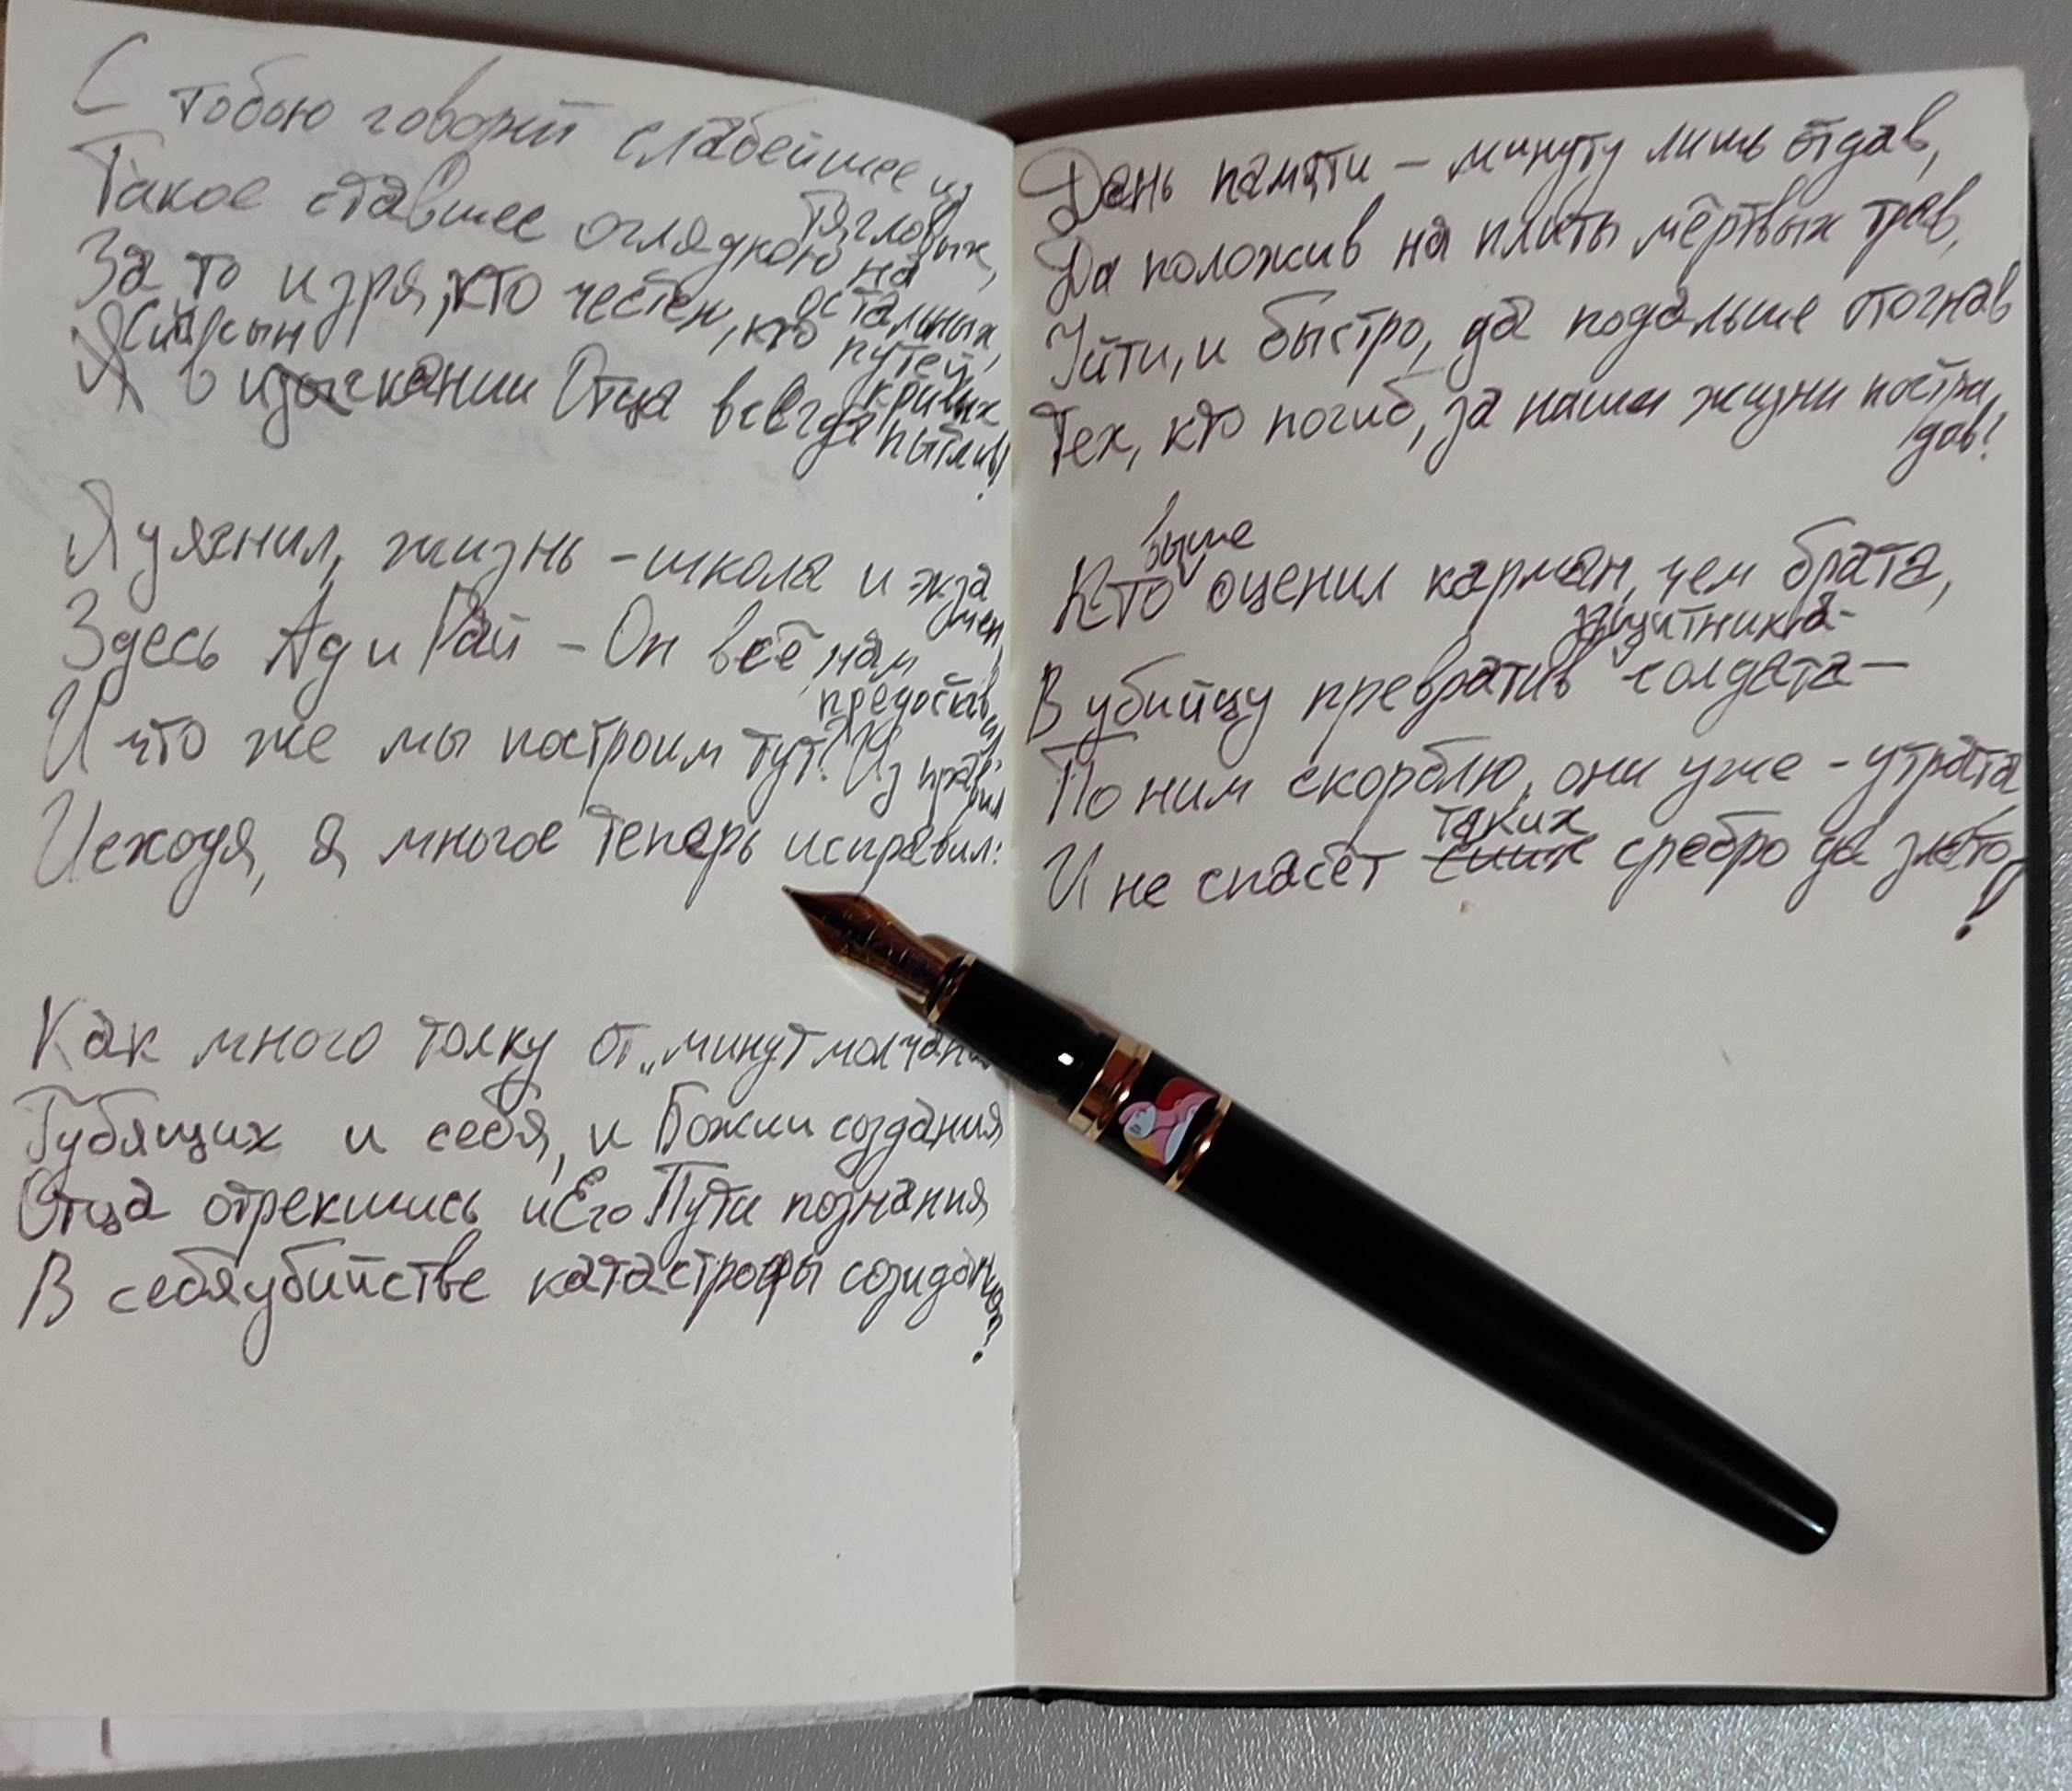 С тобою говорит слабейшее из тягловых,
Такое ставшее оглядкою на остальных,
За то и зря, кто честен, кто путей кривых
Я старсын в изыскании Отца всегда пытлив!
Я уяснил, жизнь – школа и экзамен,
Здесь Ад и Рай – Он всё нам предоставил,
И что же мы построим тут? Из правил
Исходя, я многое теперь исправил:
Как много толку от „минут молчания
Губящих и себя, и Божии создания
Отца отрекшись и Его Пути познания
В себяубийстве катастрофы созидания?
День памяти – минуту лишь отдав,
Да положив на плиты мёртвых трав,
Уйти, и быстро, да подальше отогнав
Тех, кто погиб, за наши жизни пострадав!
Кто выше оценил карман, чем брата,
В убийцу превратив защитника-солдата –
По ним скорблю, они уже – утрата,
И не спасёт таких сребро да злато!